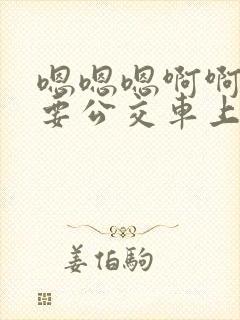 嗯嗯嗯啊啊
要公交車上
姜伯駒